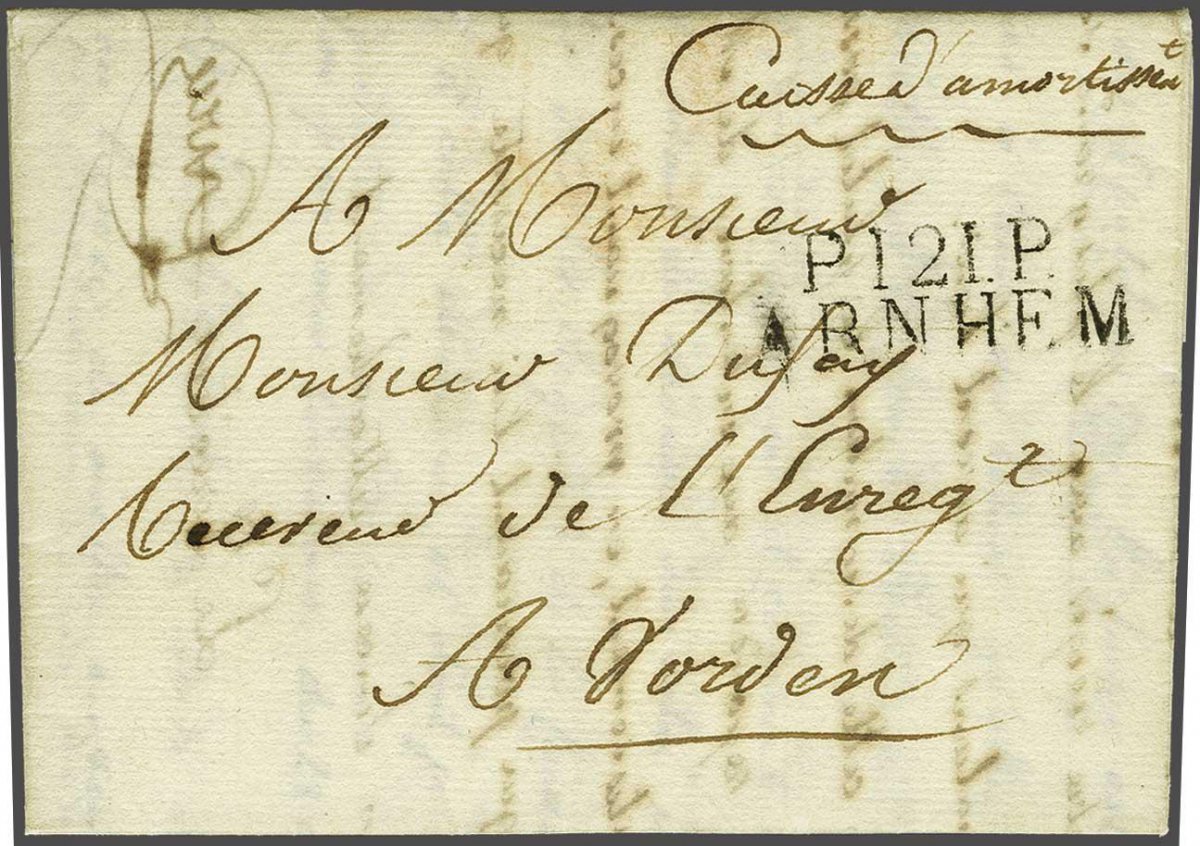 Caisse d'amortissent
A Monsieur
P.121.P.
ARNHEM
Monsieur Dufay
Receveur de l'Enregt
A Vorden